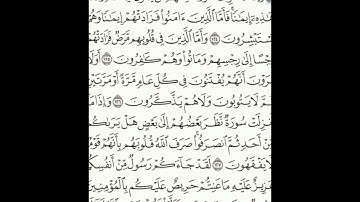 هَٰذِهِۦٓ إِيمَٰنًا فَأَمَّا ٱلَّذِينَ ءَامَنُوا۟ فَزَادَتْهُمْ إِيمَٰنًا وَهُمْ
يَسْتَبْشِرُونَ ١٢٤ وَأَمَّا ٱلَّذِينَ فِى قُلُوبِهِم مَّرَضٌ فَزَادَتْهُمْ
رِجْسًا إِلَىٰ رِجْسِهِمْ وَمَاتُوا۟ وَهُمْ كَٰفِرُونَ ١٢٥
يَرَوْنَ أَنَّهُمْ يُفْتَنُونَ فِى كُلِّ عَامٍ مَّرَّةً أَوْ مَرَّتَيْنِ
ثُمَّ لَا يَتُوبُونَ وَلَا هُمْ يَذَّكَّرُونَ ١٢٦ وَإِذَا مَآ
أُنزِلَتْ سُورَةٌ نَّظَرَ بَعْضُهُمْ إِلَىٰ بَعْضٍ هَلْ يَرَىٰكُم
مِّنْ أَحَدٍ ثُمَّ ٱنصَرَفُوا۟ صَرَفَ ٱللَّهُ قُلُوبَهُم بِأَنَّهُمْ قَوْمٌ
لَّا يَفْقَهُونَ ١٢٧ لَقَدْ جَآءَكُمْ رَسُولٌ مِّنْ أَنفُسِكُمْ
عَزِيزٌ عَلَيْهِ مَا عَنِتُّمْ حَرِيصٌ عَلَيْكُم بِٱلْمُؤْمِنِينَ